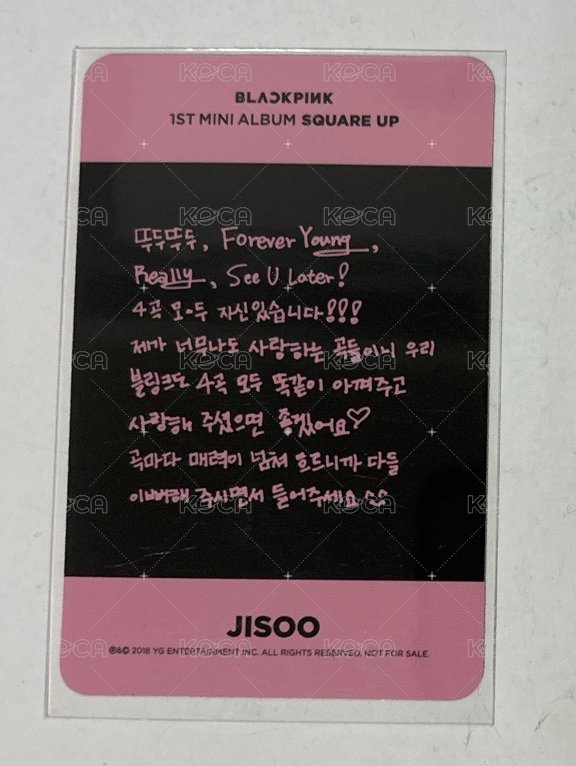 BLACKPINK
1ST MINI ALBUM SQUARE UP
뚜두뚜두, Forever Young,
Really, See U Later!
4곡 모두 자신있습니다!!!
제가 너무나도 사랑하는 곡들이니 우리
블링크도 4곡 모두 똑같이 아껴주고
사랑해 주셨으면 좋겠어요♡
곡마다 매력이 넘쳐 흐르니까 다들
이뻐해 주시면서 들어주세요 ^^
JISOO
℗&© 2018 YG ENTERTAINMENT INC. ALL RIGHTS RESERVED. NOT FOR SALE.
KOCA